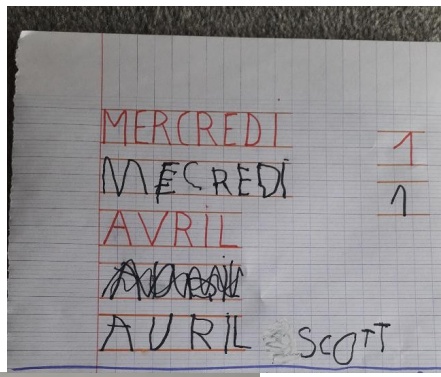 MERCREDI 1
MECREDI 1
AVRIL
AVRIL SCOTT